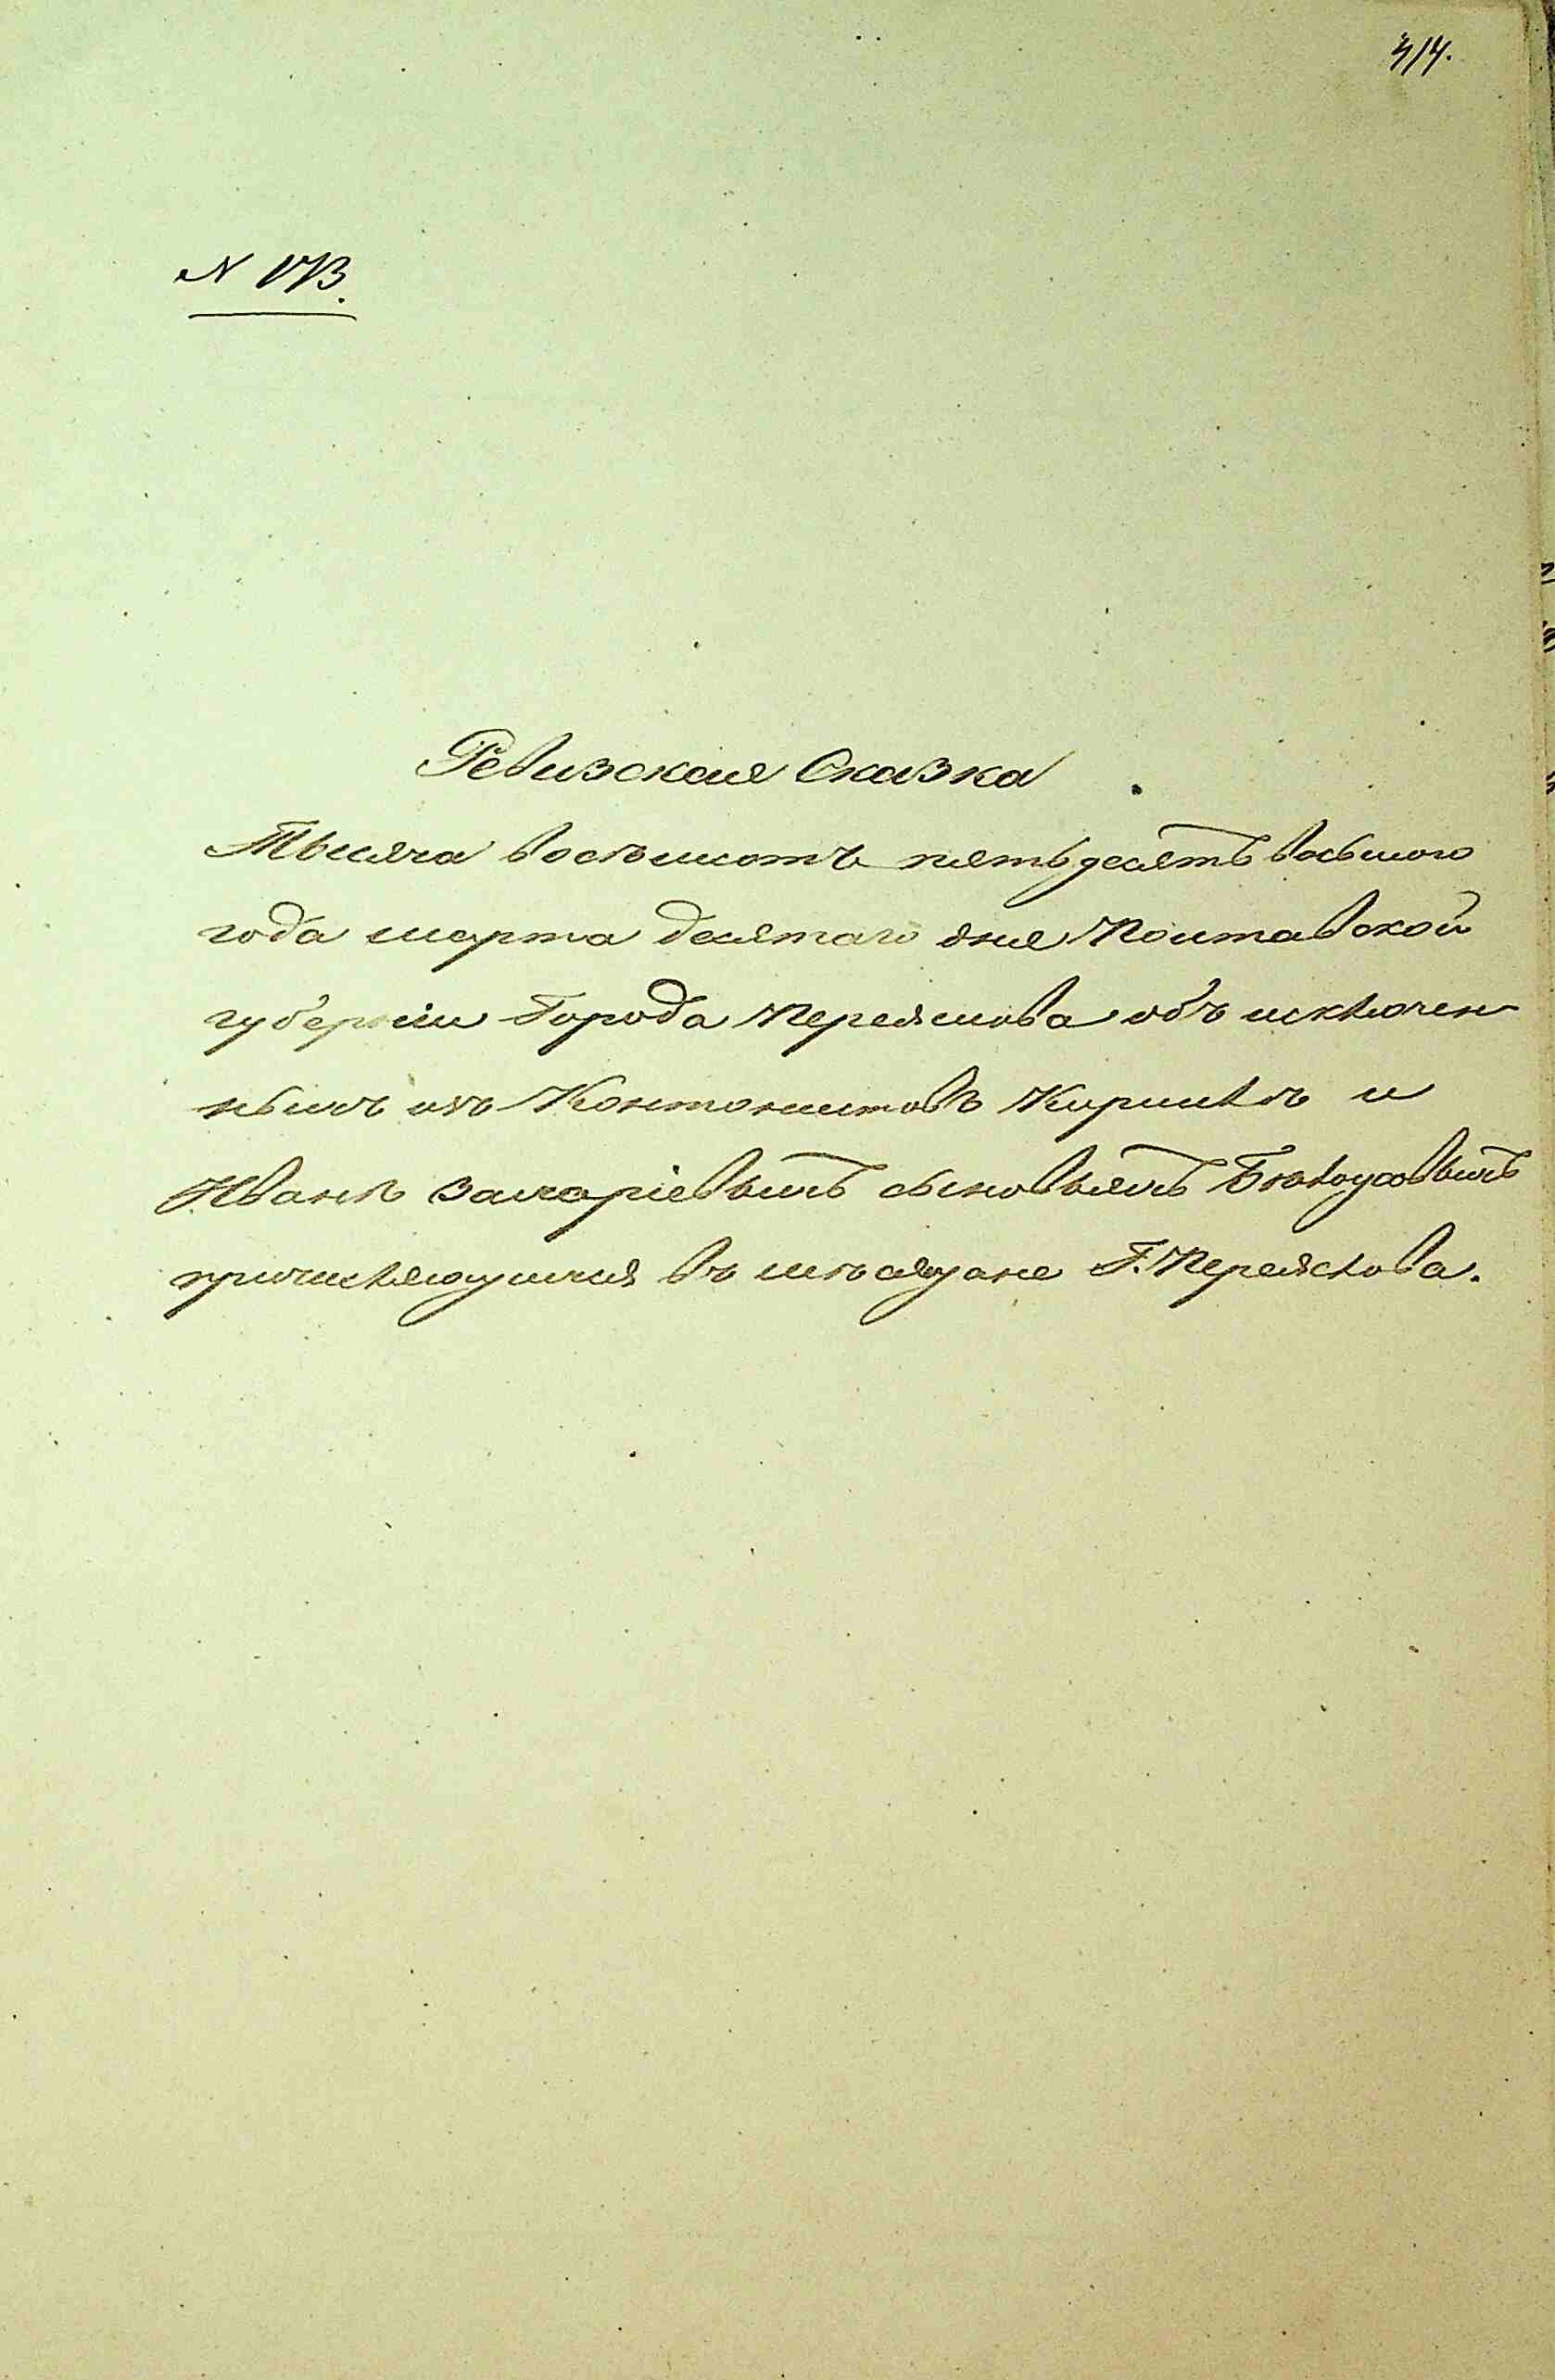 414.
N 173.
Ревизская Сказка
Тысяча восемсотъ пятьдесятъ восьмого
года марта десятаго дня Полтавской
губерніи Города Переяслова объ исключен
ныхъ изъ Контонистовъ Кирилѣ и
Иванѣ Захаріевыхъ сыновьяхъ Белоусовыхъ
причисляющихся въ мѣщане Г. Переяслова.